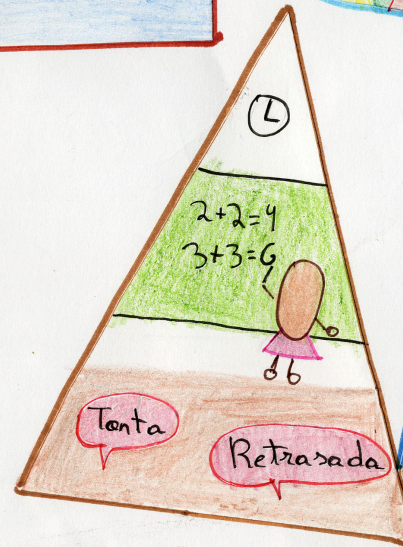 2+2=4
3+3=6
Tonta
Retrasada